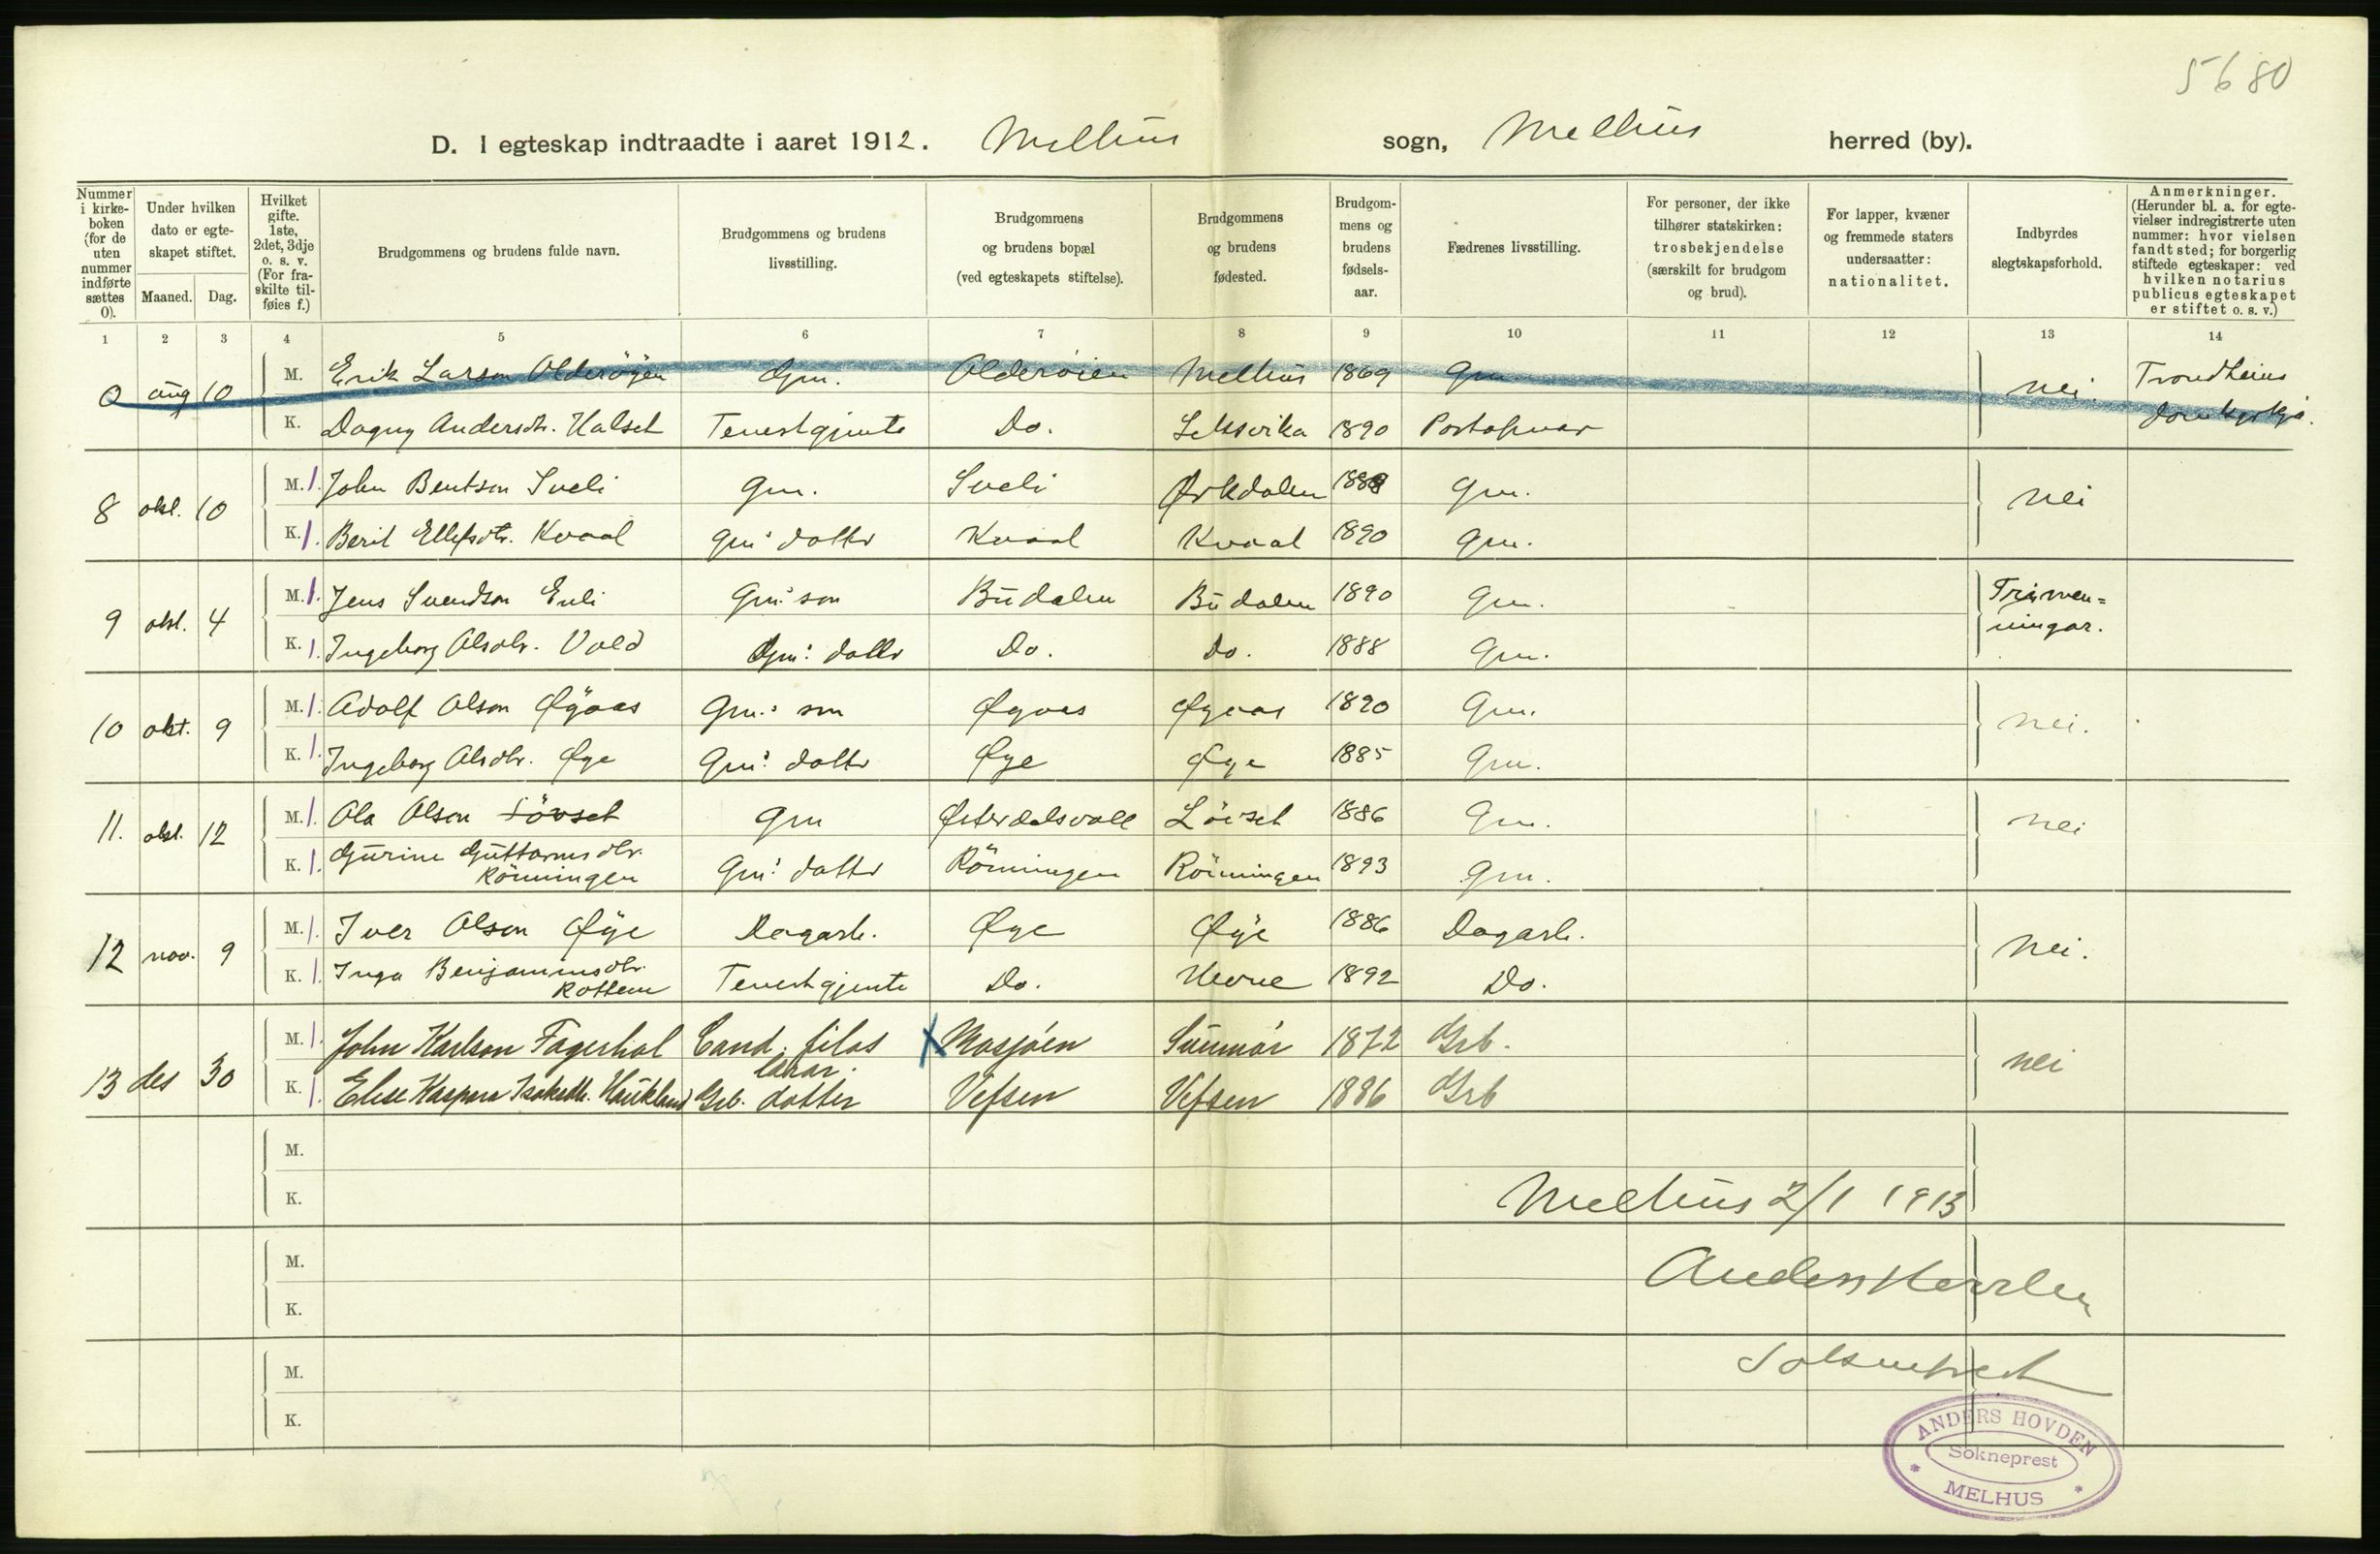 5680
D. I egteskap indtraadte i aaret 1912. Melhus sogn, Melhus herred (by).
Nummer i kirkeboken (for de uten nummer indførte sættes 0).
Under hvilken dato er egteskapet stiftet.
Maaned. Dag.
Hvilket gifte. 1ste, 2det, 3dje o. s. v. (For fraskilte tilføies f.)
Brudgommens og brudens fulde navn.
Brudgommens og brudens livsstilling.
Brudgommens og brudens bopæl (ved egteskapets stiftelse).
Brudgommens og brudens fødested.
Brudgommens og brudens fødselsaar.
Fædrenes livsstilling.
For personer, der ikke tilhører statskirken: trosbekjendelse (særskilt for brudgom og brud).
For lapper, kvæner og fremmede staters undersaatter: nationalitet.
Indbyrdes slegtskapsforhold.
Anmerkninger. (Herunder bl. a. for egtevielser indregistrerte uten nummer: hvor vielsen fandt sted; for borgerlig stiftede egteskaper: ved hvilken notarius publicus egteskapet er stiftet o. s. v.)
1 2 3 4 5 6 7 8 9 10 11 12 13 14
0 aug 10 M. Erik Larson Alderøyen Gm. Alderøien Melhus 1869 Gm nei. Trondheims domkyrkja.
K. Dagny Andersdtr. Halset Tenestgjente Do. Leksvika 1890 Postapnar
8 okt. 10 M. 1. John Bentson Sveli Gm. Sveli Ørkdalen 1888 Gm. nei
K. 1. Berit Ellefsdtr. Kvaal Gm: dotter Kvaal Kvaal 1890 Gm.
9 okt. 4 M. 1. Jens Svendson Enli Gm: son Budalen Budalen 1890 Gm. Trimen=
ningar.
K. 1. Ingeborg Olsdtr. Vold Gm: dotter Do. Do. 1888 Gm.
10 okt. 9 M. 1. Adolf Olson Øyaas Gm: son Øyaas Øyaas 1890 Gm. nei.
K. 1. Ingeborg Olsdtr. Øye Gm: dotter Øye Øye 1885 Gm.
11. okt. 12 M. 1. Ola Olson Løvset Gm Østerdalsvoll Løvset 1886 Gm. nei
K. 1. Gurine Guttormsdtr.
Rönningen Gm: dotter Rönningen Rönningen 1893 Gm.
12 nov. 9 M. 1. Iver Olson Øye Dagarb. Øye Øye 1886 Dagarb. nei.
K. 1. Inga Benjaminsdtr.
Rottem Tenestgjente Do. Hevne 1892 Do.
13 des 30 M. 1. John Karlson Fagerhol Cand. filos X Mosjøen Sunmør 1872 Grb. nei
lærar.
K. 1. Elise Kaspara Isaksdtr. Haukland Grb. dotter Vefsen Vefsen 1886 Grb
M.
K.
Melhus 2/1 1913
M.
Anders Hovden
K.
M.
Sokneprest
K.
ANDERS HOVDEN
Sokneprest
* MELHUS *